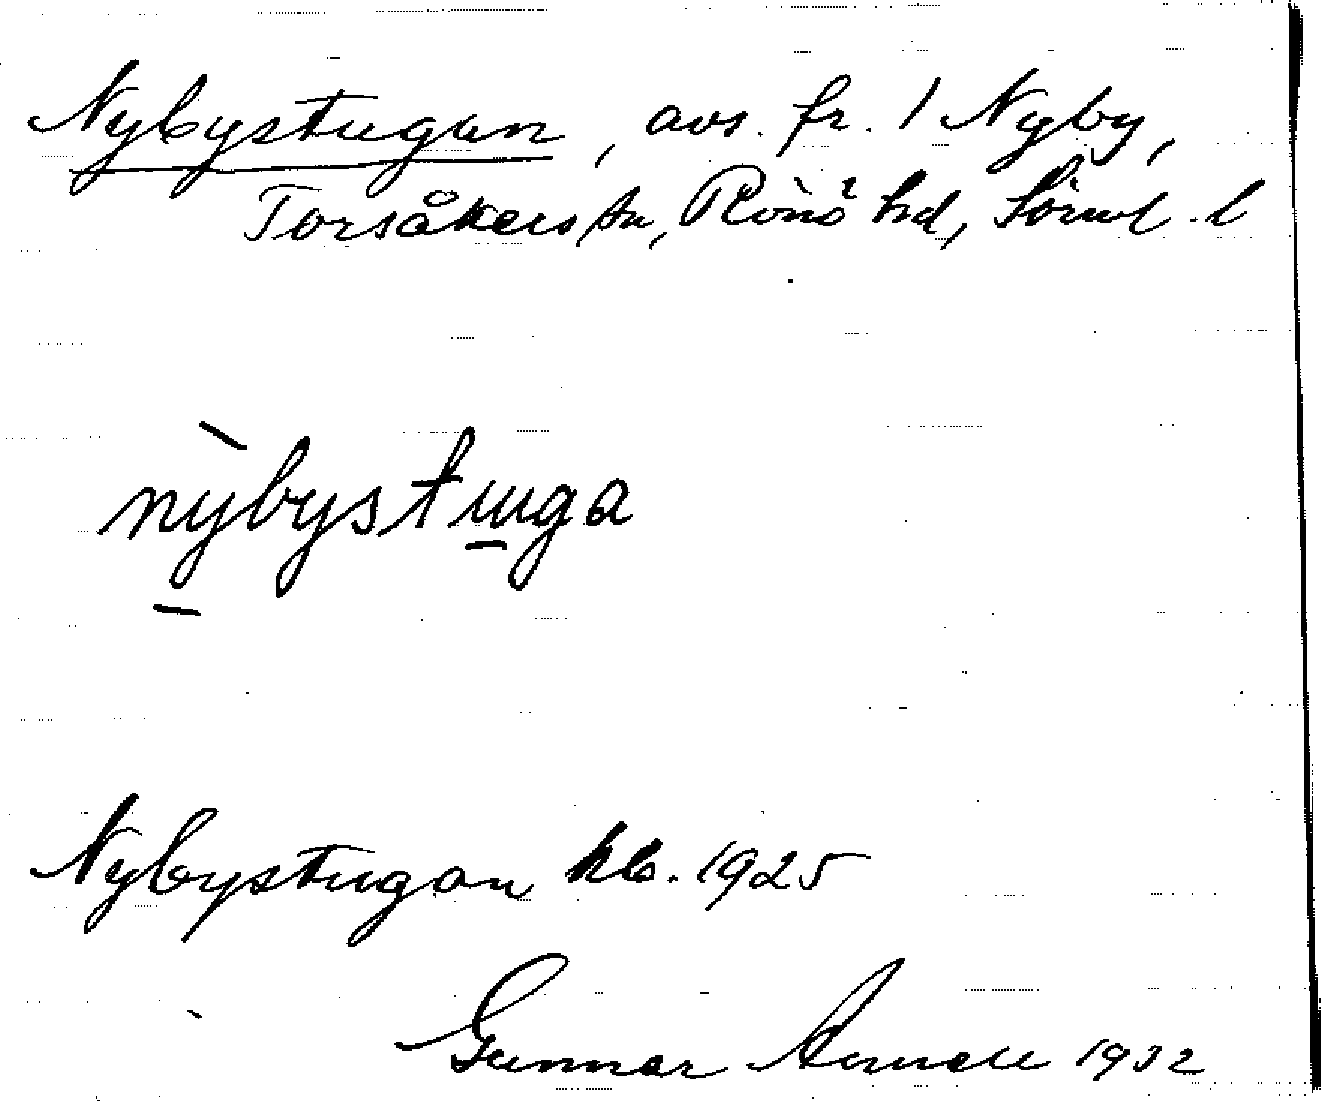 Nybystugan, avs. fr. 1 Nyby,
Torsåkers sn, Rönö hd, Sörml. l
nybystuga
Nybystugan kb. 1925
Gunnar 1932